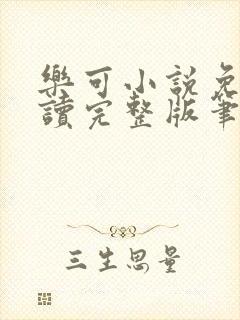 樂可小説免
讀完整版筆
三生思量